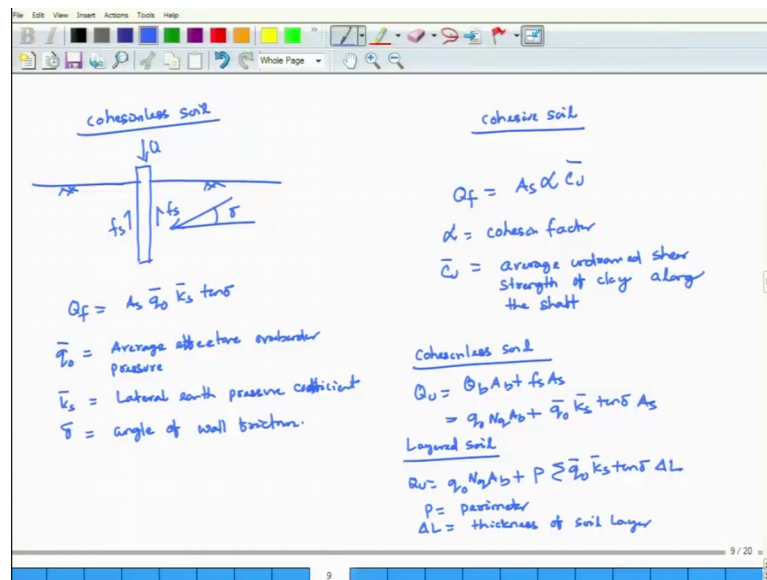 File Edit View Insert Actions Tools Help
B I
Whole Page
cohesonless soil
Q
fs fs δ
Qf = As q̄o k̄s tanδ
q̄o = Average effective overburder pressure
k̄s = Lateral earth pressure coefficient
δ = angle of wall friction.
cohesive soil
Qf = As α C̄u
α = coheson factor
C̄u = average undrained shear
strength of clay along
the shaft
Cohesonless soil
Qu = Qb Ab + fs As
= qo Nq Ab + q̄o k̄s tanδ As
Layered soil
Qu = qo Nq Ab + P Σ q̄o k̄s tanδ ΔL
P = perimeter
ΔL = thickness of soil layer
9 / 20
9